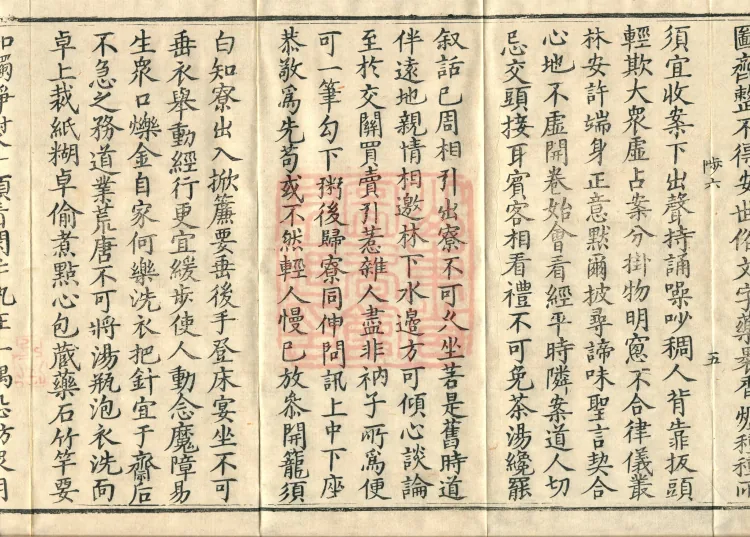 圖齊整不得安世俗文字藥裹香爐種種所
陟六
五
須宜收案下出聲持誦噪吵稠人背靠扳頭
輕欺大衆虛占案分掛物明窻不合律儀叢
林安許端身正意默爾披尋諦味聖言契合
心地不虛開卷始會看經平時隣案道人切
忌交頭接耳賓客相看禮不可免茶湯纔罷
叙話已周相引出寮不可久坐若是舊時道
伴遠地親情相邀林下水邊方可傾心談論
至於交關買賣引惹雜人盡非衲子所爲便
可一筆勾下粥後歸寮同伸問訊上中下座
恭敬爲先苟或不然輕人慢已放叅開籠須
白知寮出入掀簾要垂後手登床宴坐不可
垂衣舉動經行更宜緩步使人動念魔障易
生衆口爍金自家何樂洗衣把針宜于齋后
不急之務道業荒唐不可將湯瓶泡衣洗面
卓上裁紙糊卓偷煮點心包藏藥石竹竿要